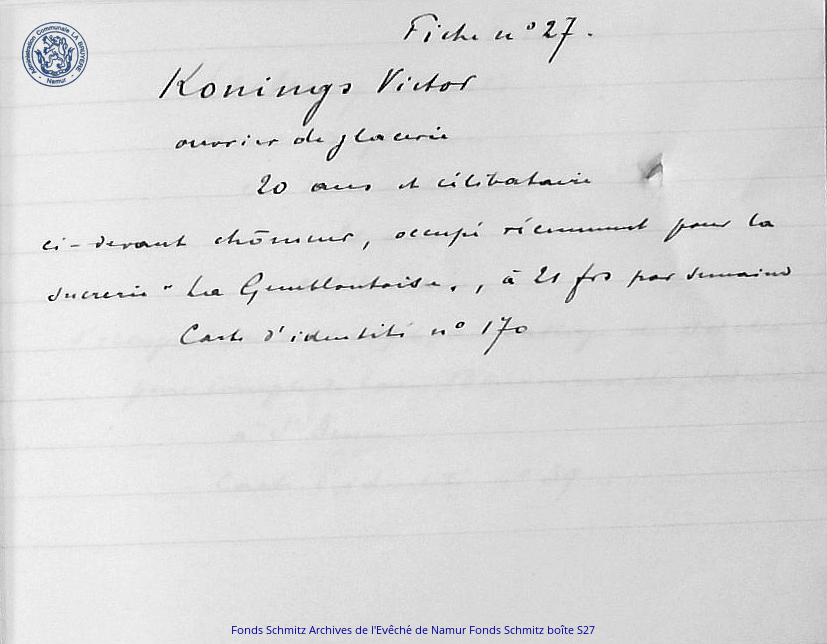 Fiche n° 27.
Konings Victor
ouvrier de glacerie
20 ans et célibataire
ci-devant chômeur, occupé récemment pour la
sucrerie "La Gembloutoise,, à 21 frs par semaine
Carte d'identité n° 170
Administration Communale LA BRUYERE
- Namur -
Fonds Schmitz Archives de l'Evêché de Namur Fonds Schmitz boîte S27